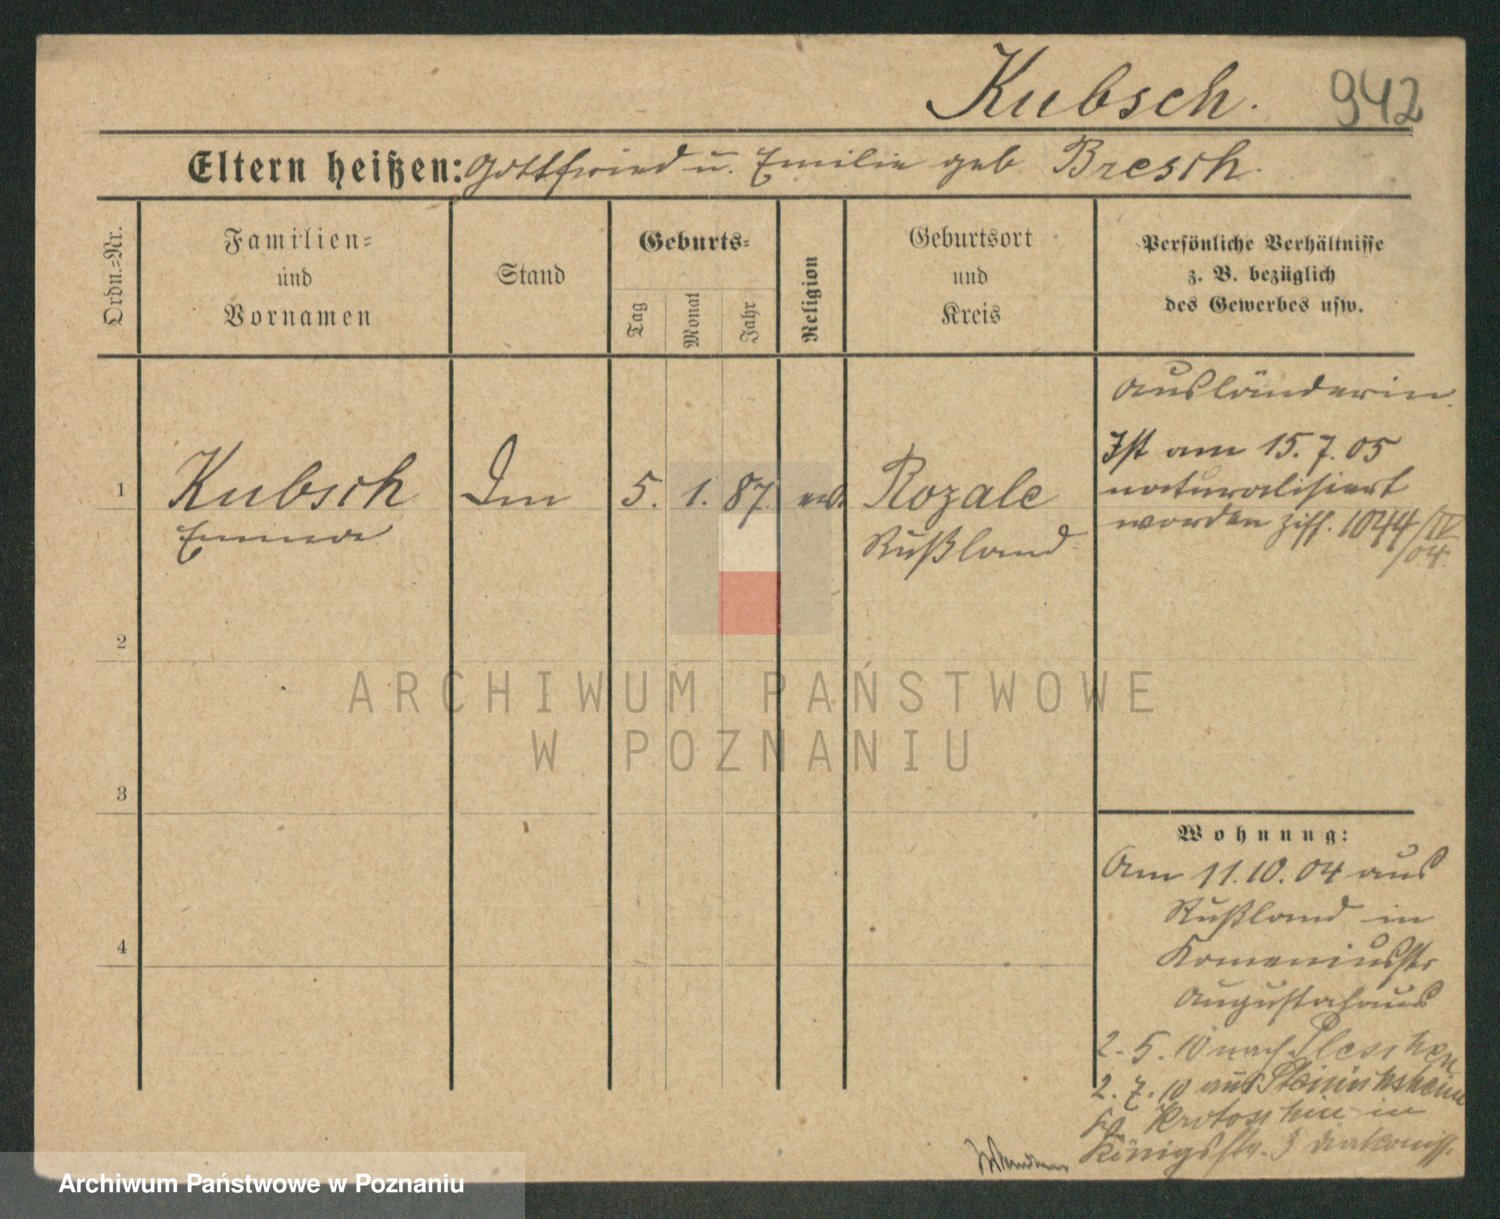 Kubsch. 942
Eltern heißen: Gottfried u. Emilie geb Bresch.
Ordn.-Nr.
Familien- und Vornamen
Stand
Geburts-
Tag
Monat
Jahr
Religion
Geburtsort und Kreis
Persönliche Verhältnisse z. B. bezüglich des Gewerbes usw.
1
Kubsch
Emma
5. 1. 87
ev.
Rozale
Rußland
Ausländerin.
Ist am 15.7.05
naturalisiert
worden Ziff. 1044/IV
/04.
2
3
4
ARCHIWUM PAŃSTWOWE
W POZNANIU
Wohnung:
Am 11.10.04 aus
Rußland in
Komeniusstr
Augustahaus
2.5.10 nach Pleschen
2.7.10 aus
Krotoschin in
Königsstr. 3 Diakoniss.
Archiwum Państwowe w Poznaniu